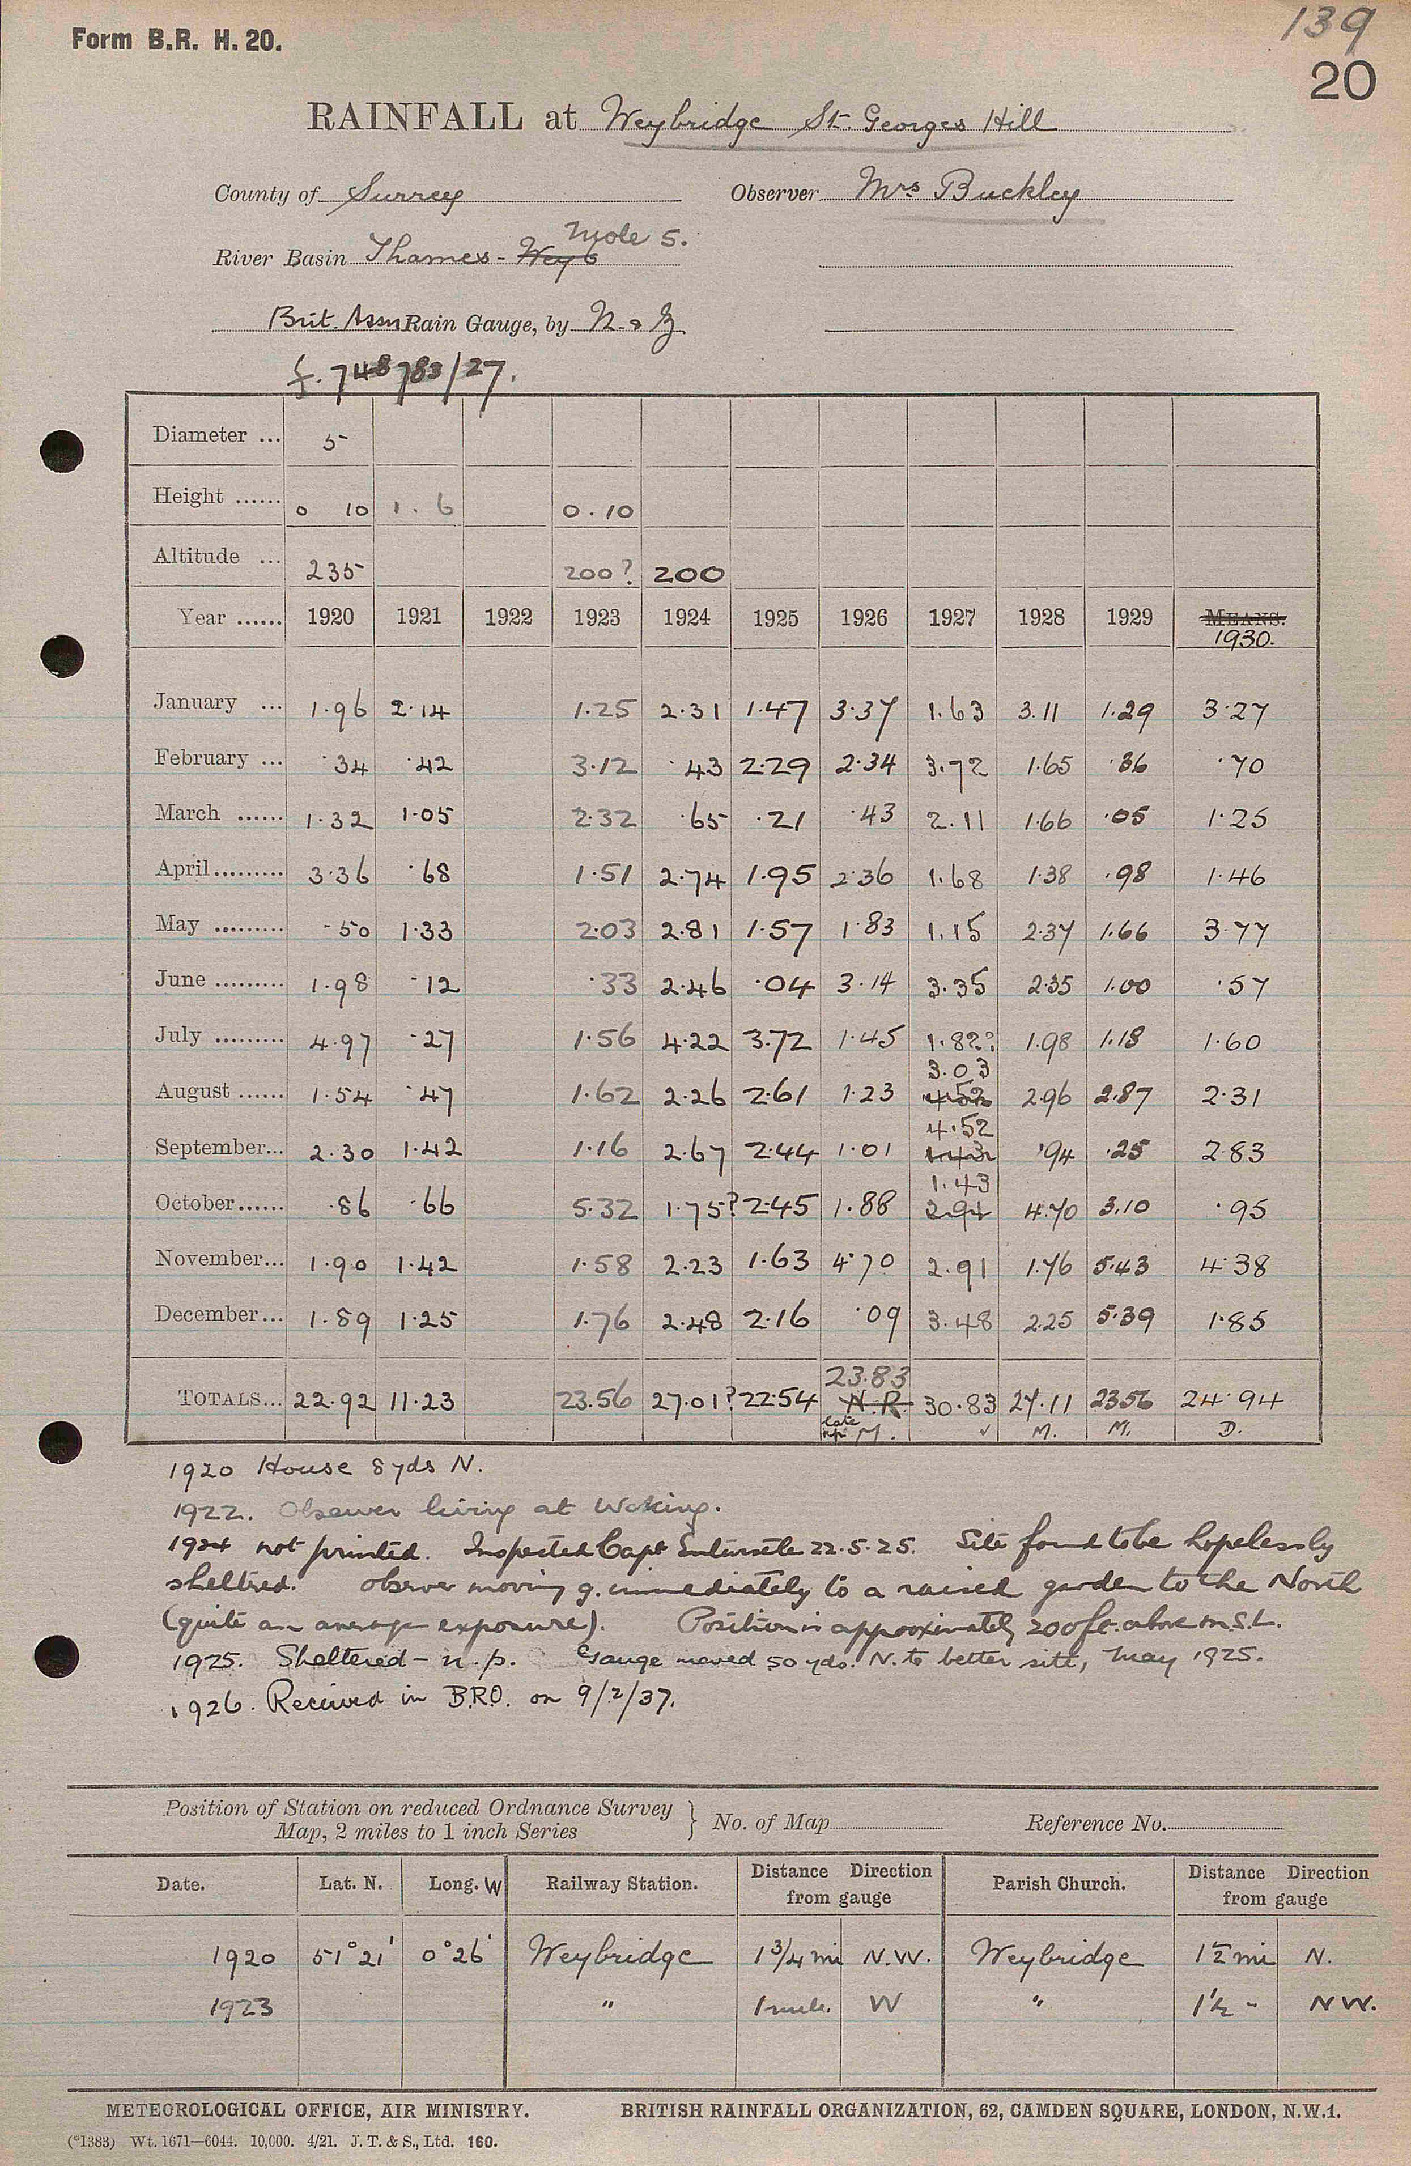 139
Form B.R. H. 20.
20
RAINFALL at Weybridge St. Georges Hill
County of Surrey Observer Mrs Buckley
Mole 5.
River Basin Thames - Wey 6
Brit. Assn Rain Gauge, by N. & Z.
f. 748783/27.
Diameter ... 5
Height ...... 0 10 1. 6 0.10
Altitude ... 235 200? 200
Year ...... 1920 1921 1922 1923 1924 1925 1926 1927 1928 1929 MEANS.
1930.
January ... 1.96 2.14 1.25 2.31 1.47 3.37 1.63 3.11 1.29 3.27
February ... .34 .42 3.12 .43 2.29 2.34 3.72 1.65 .36 .70
March ...... 1.32 1.05 2.32 .65 .21 .43 2.11 1.66 .05 1.25
April......... 3.36 .68 1.51 2.74 1.95 2.36 1.68 1.38 .98 1.46
May ......... .50 1.33 2.03 2.81 1.57 1.83 1.15 2.37 1.66 3.77
June ......... 1.98 .12 .33 2.46 .04 3.14 3.35 2.35 1.00 .57
July ......... 4.97 .27 1.56 4.22 3.72 1.45 1.82? 1.98 1.18 1.60
3.03
August ...... 1.54 .47 1.62 2.26 2.61 1.23 4.52 2.96 2.87 2.31
4.52
September... 2.30 1.42 1.16 2.67 2.44 1.01 1.43 .94 .25 2.83
1.43
October...... .86 .66 5.32 1.75? 2.45 1.88 2.94 4.70 3.10 .95
November... 1.90 1.42 1.58 2.23 1.63 4.70 2.91 1.76 5.43 4.38
December... 1.89 1.25 1.76 2.48 2.16 .09 3.48 2.25 5.39 1.85
23.83
TOTALS... 22.92 11.23 23.56 27.01? 22.54 N.R. 30.83 27.11 23.56 24.94
late np M. ✓ M. M. D.
1920 House 8 yds N.
1922. Observer living at Woking.
1924 not printed. Inspected Capt Entwistle 22.5.25. Site found to be hopelessly
sheltered. Observer moving g. immediately to a raised garden to the North
(quite an average exposure). Position is approximately 200 ft. above M.S.L.
1925. Sheltered - n.p. Gauge moved 50 yds. N. to better site, May 1925.
1926. Received in B.R.O. on 9/2/37.
Position of Station on reduced Ordnance Survey
Map, 2 miles to 1 inch Series } No. of Map Reference No.
Date. Lat. N. Long. W Railway Station. Distance Direction from gauge Parish Church. Distance Direction from gauge
1920 51°21' 0°26' Weybridge 1 3/4 mi N.W. Weybridge 1 1/2 mi N.
1923 " 1 mile. W " 1 1/2 - NW.
METEOROLOGICAL OFFICE, AIR MINISTRY. BRITISH RAINFALL ORGANIZATION, 62, CAMDEN SQUARE, LONDON, N.W.1.
(*1383) Wt. 1671—6044. 10,000. 4/21. J. T. & S., Ltd. 160.